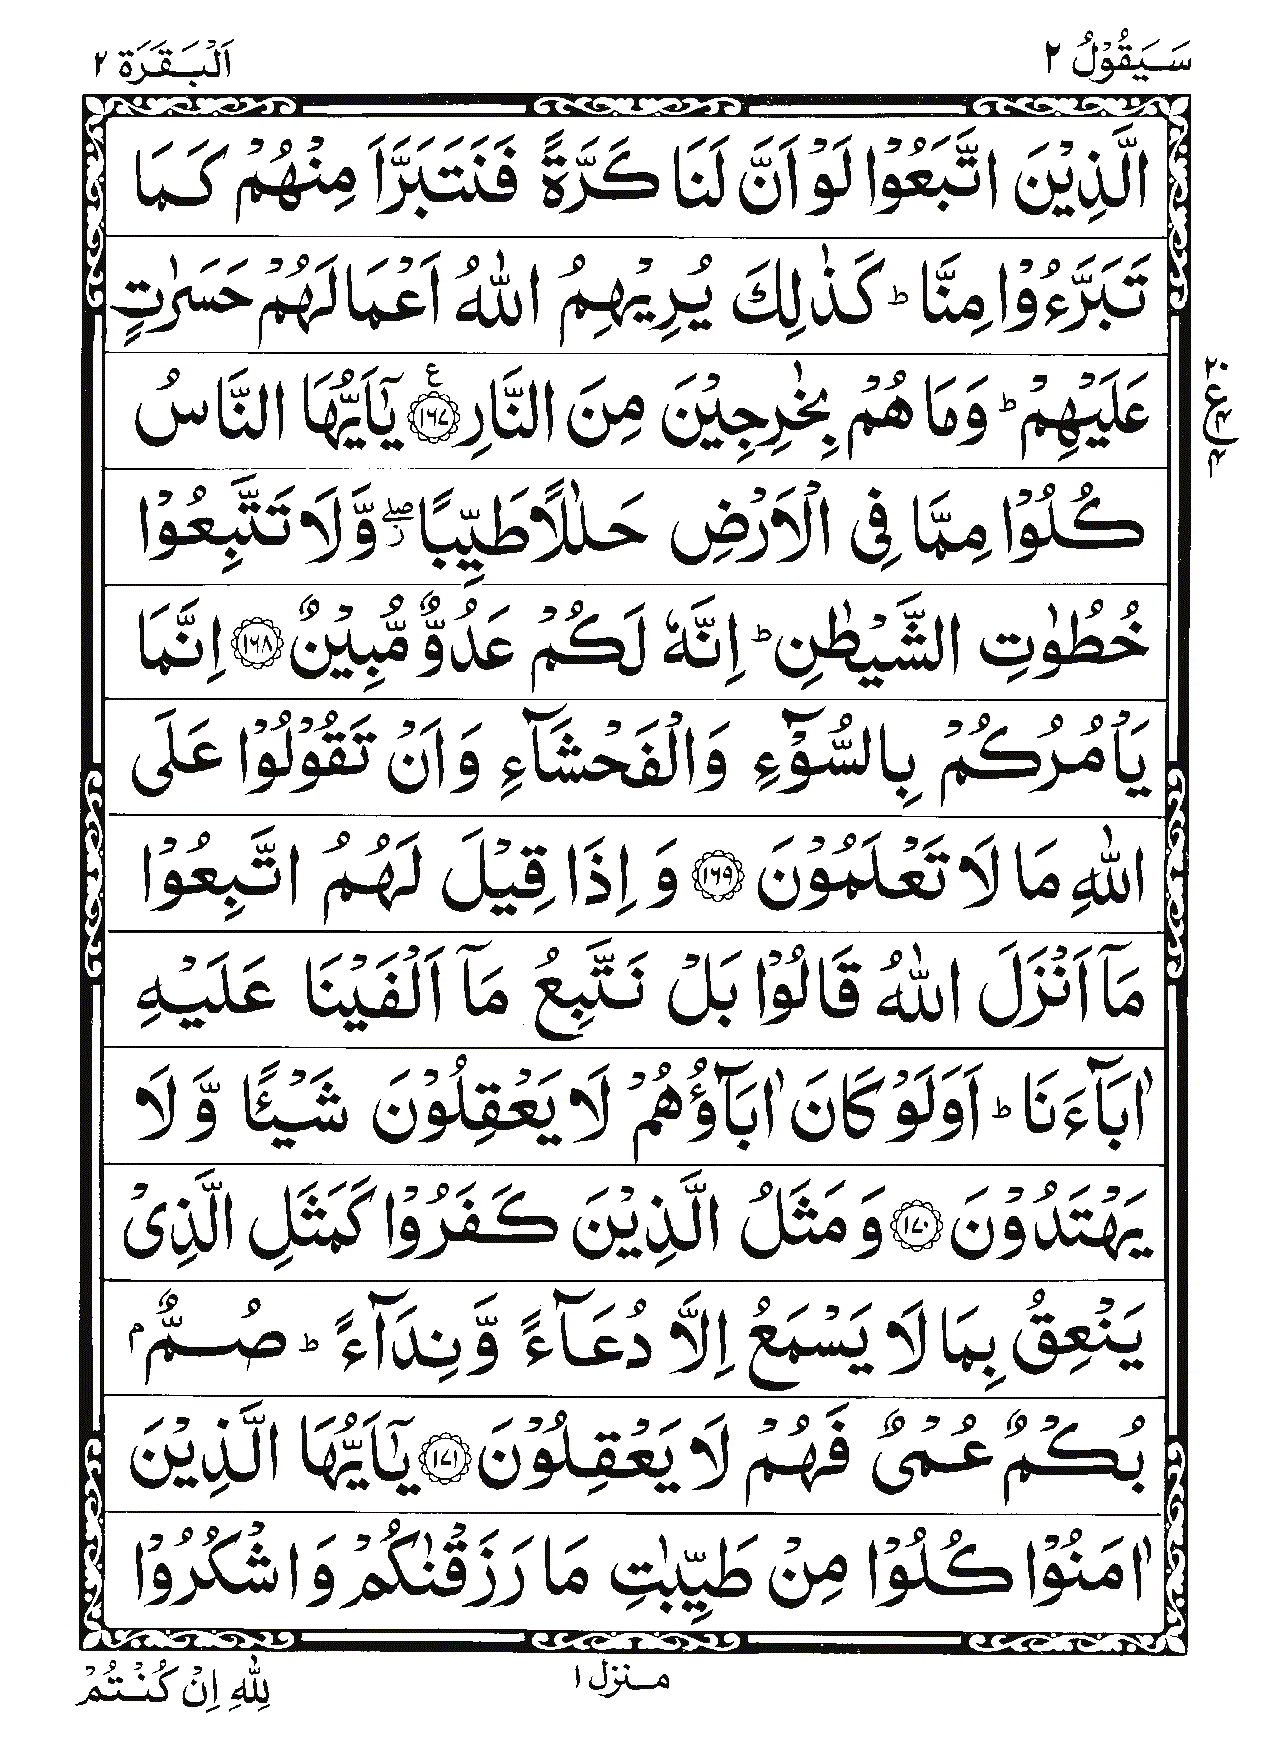 سَيَقُوْلُ ٢
اَلْبَقَرَة ٢
الَّذِيْنَ اتَّبَعُوْا لَوْ اَنَّ لَنَا كَرَّةً فَنَتَبَرَّاَ مِنْهُمْ كَمَا
تَبَرَّءُوْا مِنَّا ؕ كَذٰلِكَ يُرِيْهِمُ اللّٰهُ اَعْمَالَهُمْ حَسَرٰتٍ
عَلَيْهِمْ ؕ وَمَا هُمْ بِخٰرِجِيْنَ مِنَ النَّارِ ﴿١٦٧﴾ ع يٰۤاَيُّهَا النَّاسُ
كُلُوْا مِمَّا فِى الْاَرْضِ حَلٰلًا طَيِّبًا ۖ وَّلَا تَتَّبِعُوْا
خُطُوٰتِ الشَّيْطٰنِ ؕ اِنَّهٗ لَكُمْ عَدُوٌّ مُّبِيْنٌ ﴿١٦٨﴾ اِنَّمَا
يَاْمُرُكُمْ بِالسُّوْٓءِ وَالْفَحْشَآءِ وَاَنْ تَقُوْلُوْا عَلَى
اللّٰهِ مَا لَا تَعْلَمُوْنَ ﴿١٦٩﴾ وَاِذَا قِيْلَ لَهُمُ اتَّبِعُوْا
مَاۤ اَنْزَلَ اللّٰهُ قَالُوْا بَلْ نَتَّبِعُ مَاۤ اَلْفَيْنَا عَلَيْهِ
اٰبَآءَنَا ؕ اَوَلَوْ كَانَ اٰبَآؤُهُمْ لَا يَعْقِلُوْنَ شَيْئًا وَّلَا
يَهْتَدُوْنَ ﴿١٧٠﴾ وَمَثَلُ الَّذِيْنَ كَفَرُوْا كَمَثَلِ الَّذِىْ
يَنْعِقُ بِمَا لَا يَسْمَعُ اِلَّا دُعَآءً وَّنِدَآءً ؕ صُمٌّۢ
بُكْمٌ عُمْىٌ فَهُمْ لَا يَعْقِلُوْنَ ﴿١٧١﴾ يٰۤاَيُّهَا الَّذِيْنَ
اٰمَنُوْا كُلُوْا مِنْ طَيِّبٰتِ مَا رَزَقْنٰكُمْ وَاشْكُرُوْا
منزل ١
لِلّٰهِ اِنْ كُنْتُمْ